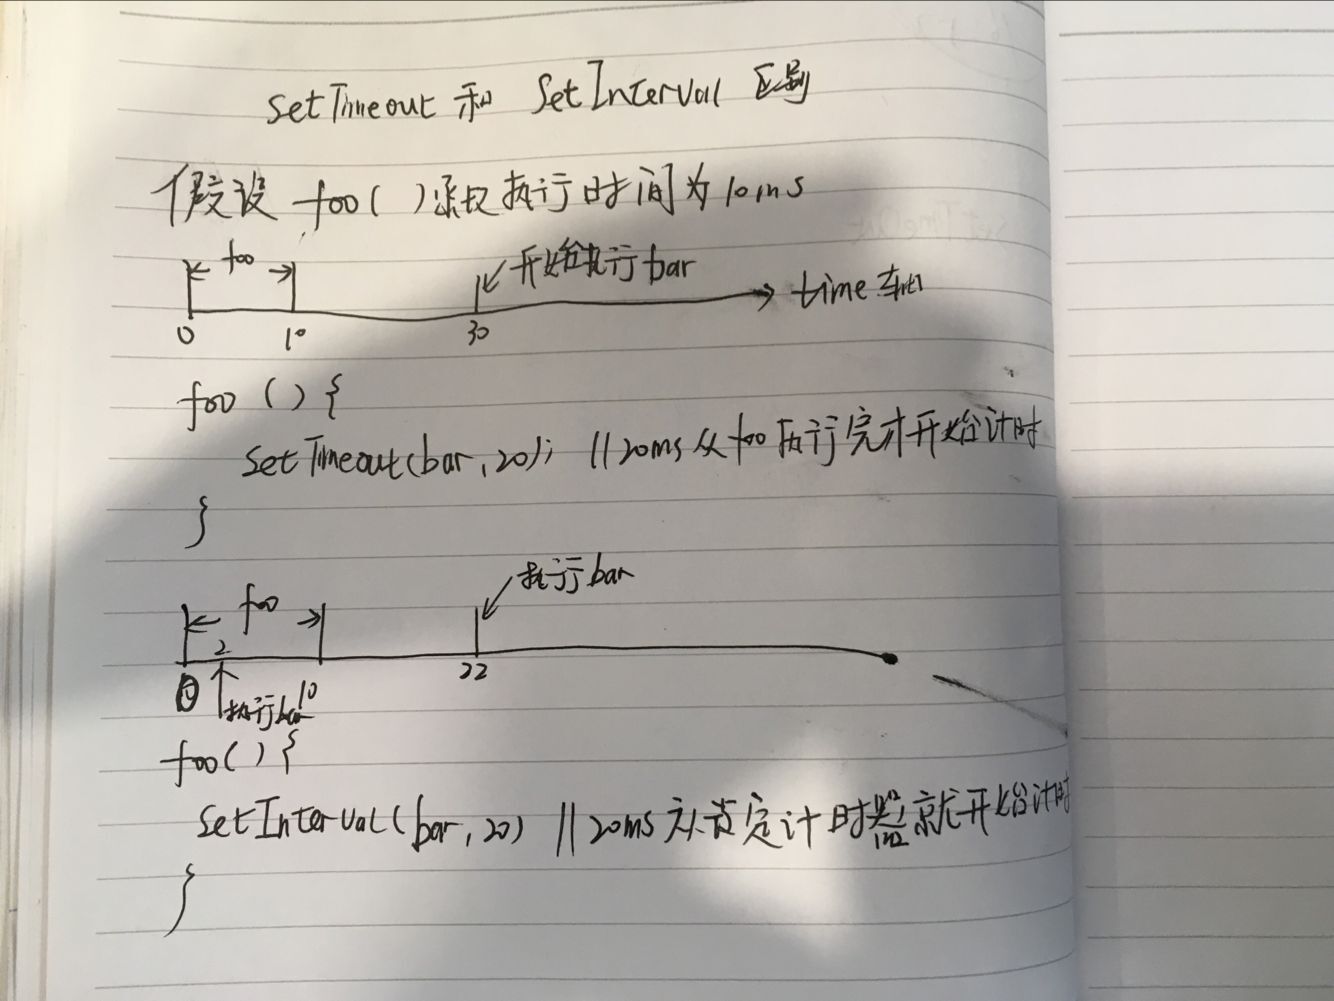 setTimeout 和 SetInterval 区别
假设 foo()函数执行时间为10ms
foo
开始执行bar
time 轴
0 10 30
foo () {
setTimeout(bar,20); //20ms 从foo执行完才开始计时
}
foo
执行bar
2
0 10 22
执行bar
foo() {
SetInterval(bar,20) //20ms 从 定计时器就开始计时
}